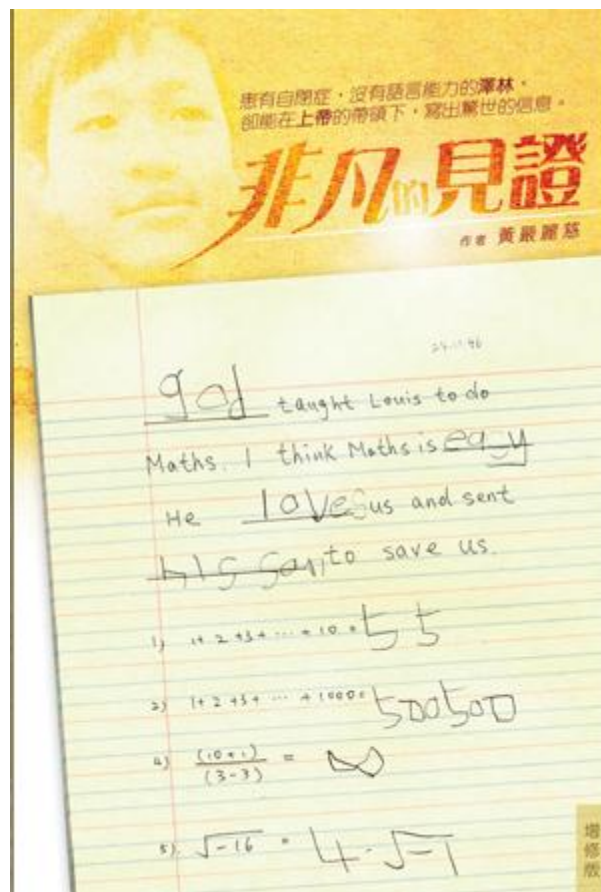 患有自閉症，沒有語言能力的澤林，
卻能在上帝的帶領下，寫出驚世的信息。
非凡的見證
作者 黃嚴麗慈
24.11.96
god taught Louis to do
Maths. I think Maths is easy
He loves us and sent
his son to save us.
1) 1+2+3+ ⋯ +10 = 55
2) 1+2+3+ ⋯ +1000= 500500
4) (10+1)/(3-3) = ∞
5) √-16 = 4·√-1
增修版